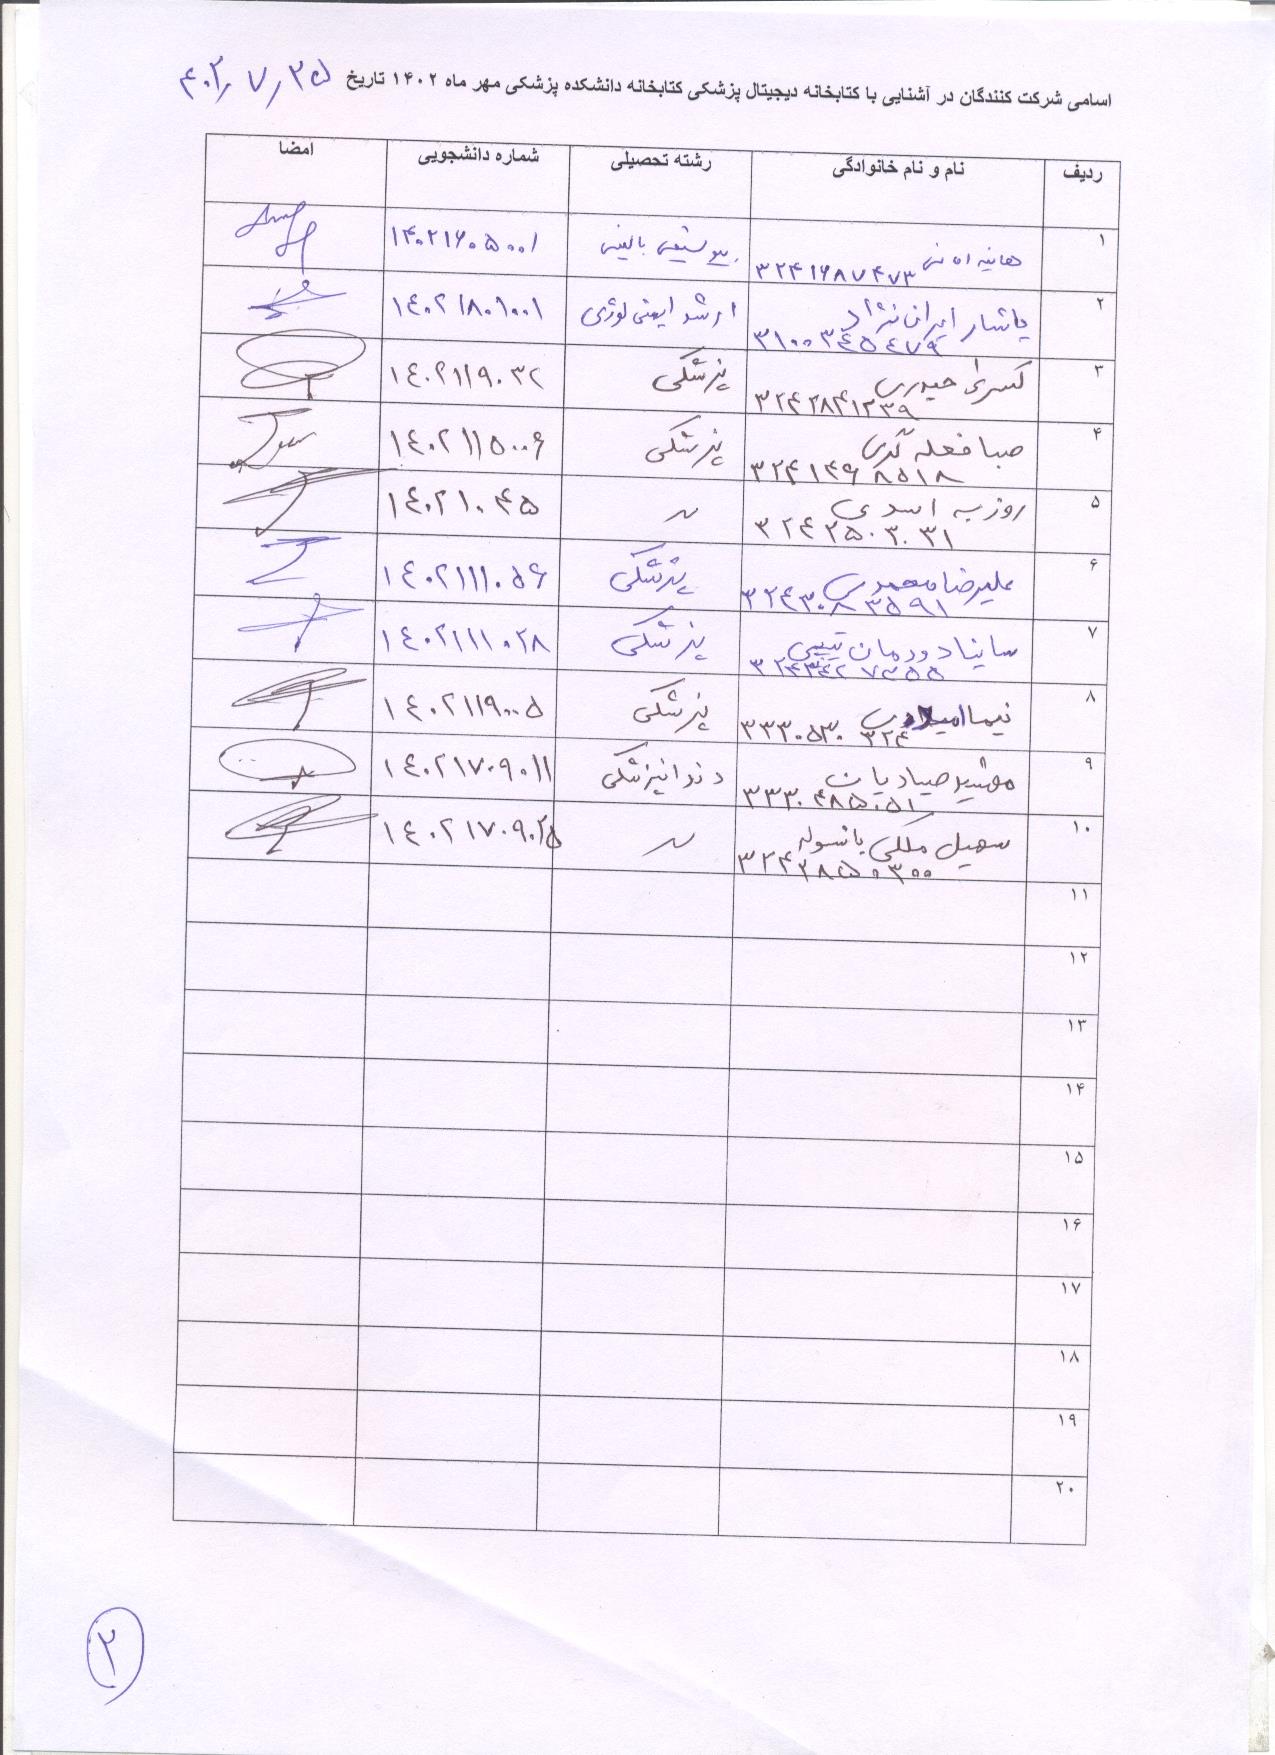 اسامی شرکت کنندگان در آشنایی با کتابخانه دیجیتال پزشکی کتابخانه دانشکده پزشکی مهر ماه ۱۴۰۲ تاریخ ۴۰۲٫۷٫۲۵
ردیف نام و نام خانوادگی رشته تحصیلی شماره دانشجویی امضا
۱ هانیه بالینی ۱۴۰۲۱۶۰۵۰۰۱
۳۲۴۱۶۸۷۴۷۳
۲ ایران نژاد ارشد ایمنی لوژی ۱۴۰۲۱۸۰۱۰۰۱
۳۱۰۰۳۴۵۴۷۹
۳ کسری حیدری پزشکی ۱۴۰۲۱۱۹۰۳۲
۳۲۴۲۸۴۱۲۳۹
۴ صبا فعله گری پزشکی ۱۴۰۲۱۱۵۰۰۶
۳۲۴۱۴۶۸۵۱۸
۵ روزبه اسدی 〃 ۱۴۰۲۱۰۴۵
۳۲۴۲۵۰۳۰۳۱
۶ علیرضا محمدی پزشکی ۱۴۰۲۱۱۱۰۵۶
۳۲۴۳۰۸۳۵۹۱
۷ ساینا دودمان پزشکی ۱۴۰۲۱۱۱۰۲۸
۸ نیما پزشکی ۱۴۰۲۱۱۹۰۰۵
۹ مهشید صیادیان دندانپزشکی ۱۴۰۲۱۷۰۹۰۱۱
۳۳۳۰۴۸۵۰۵۱
۱۰ سهیل ملکی بانسوله 〃 ۱۴۰۲۱۷۰۹۰۲۵
۳۲۴۲۸۵۰۳۰۰
۱۱
۱۲
۱۳
۱۴
۱۵
۱۶
۱۷
۱۸
۱۹
۲۰
۲